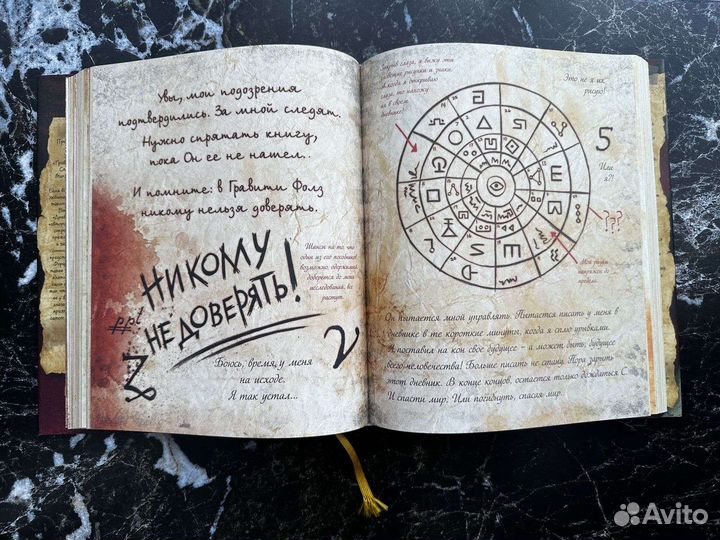 Увы, мои подозрения
подтвердились. За мной следят.
Нужно спрятать книгу,
пока Он ее не нашел..
И помните: в Гравити Фолз
никому нельзя доверять.
НИКОМУ
НЕ ДОВЕРЯТЬ!
Шансы на то, что
один из его пособников
возможно, одержимый
доберется до моих
исследований, все
растут.
2
Боюсь, время, у меня
на исходе.
Я так устал...
глаза, я вижу эти
рисунки и знаки.
когда я открываю
глаза, то нахожу
их в своем
дневнике!
Это не я их
рисую!
5
Или
я?!
!??
Мой разум
напряжен до
предела.
Он пытается мной управлять. Пытается писать у меня в
дневнике в те короткие минуты, когда я сплю урывками.
Я поставил на кон свое будущее - а может быть, будущее
всего человечества! Больше писать не стану. Пора зарыть
этот дневник. В конце концов, остается только дождаться С
И спасти мир. Или погибнуть, спасая мир.
Avito